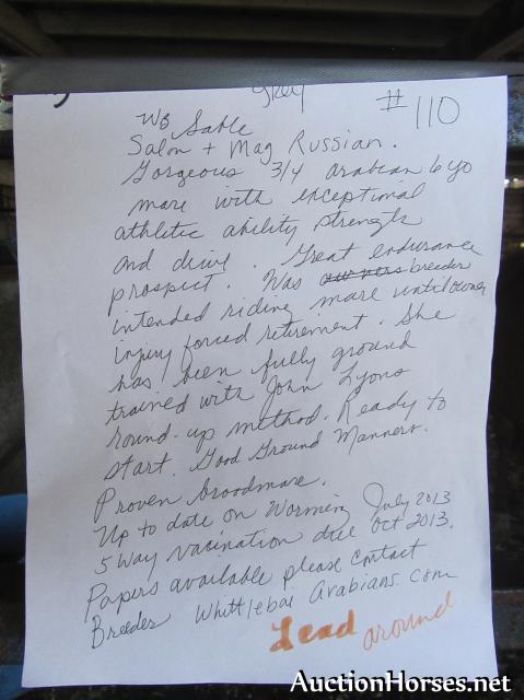 grey
#110
WB Sable
Salon + Mag Russian.
Gorgeous 3/4 arabian 6 yo
mare with exceptional
athletic ability strength
and drive. Great endurance
prospect. Was owners breeder
intended riding mare until owner
injury forced retirement. She
has been fully ground
trained with John Lyons
round-up method. Ready to
start. Good Ground Manners.
Proven broodmare.
Up to date on Worming July 2013
5 way vacination due Oct 2013.
Papers available please contact
Breeder Whittlebar Arabians.com
Lead around
AuctionHorses.net